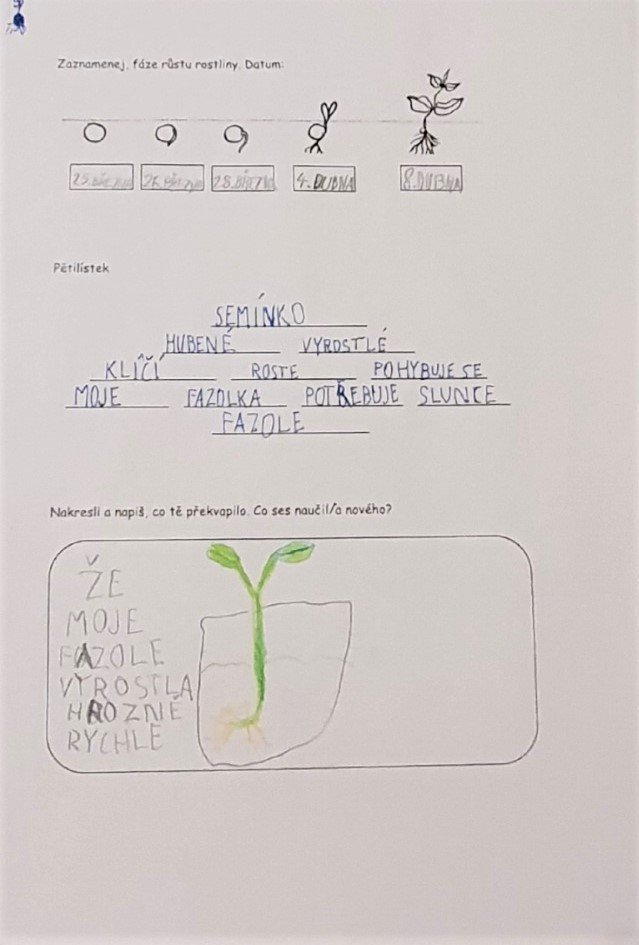 Zaznamenej, fáze růstu rostliny. Datum:
25. BŘEZNA 26. BŘEZNA 28. BŘEZNA 4. DUBNA 8. DUBNA
Pětilístek
SEMÍNKO
HUBENÉ VYROSTLÉ
KLÍČÍ ROSTE POHYBUJE SE
MOJE FAZOLKA POTŘEBUJE SLUNCE
FAZOLE
Nakresli a napiš, co tě překvapilo. Co ses naučil/a nového?
ŽE
MOJE
FAZOLE
VYROSTLA
HROZNĚ
RYCHLE